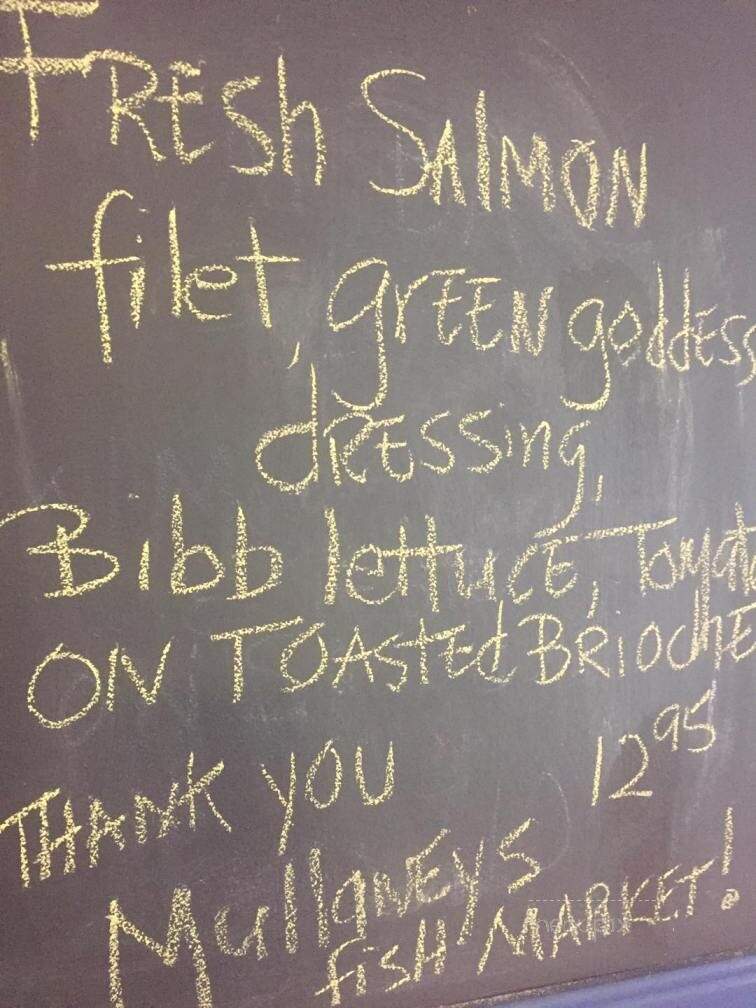 FRESh SAlMON
filet, grEEN goddess
dRESSing,
Bibb lettuce, Tomat
ON TOAsted BRiOCHE
THANK YOU 12 95
MullaNEYS
fiSH MARKET!